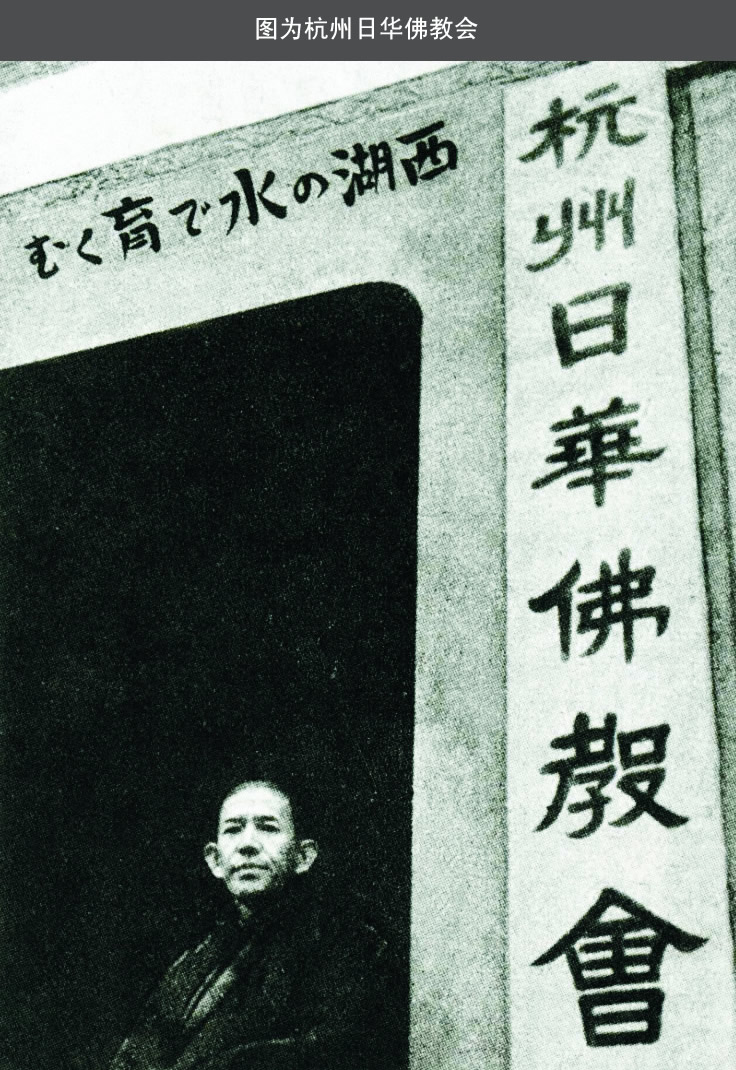 图为杭州日华佛教会
西湖の水で育くむ
杭州日華佛教會